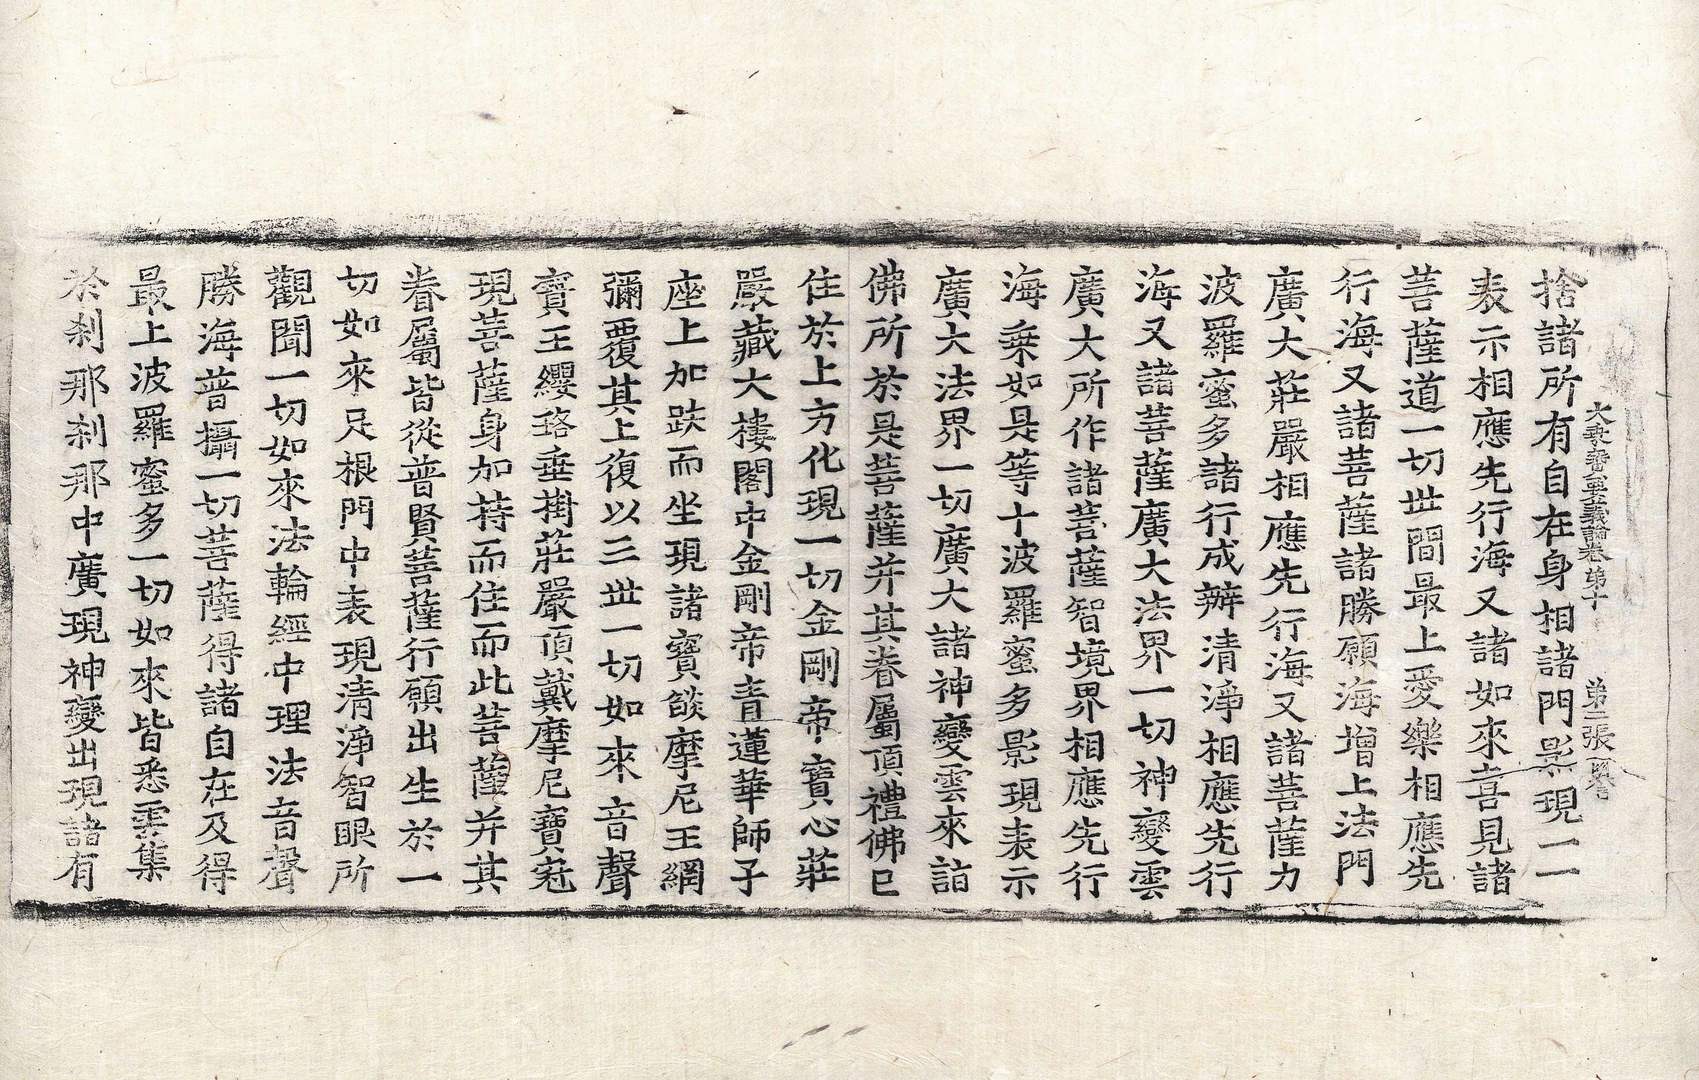 大教寶要義論卷第十　第二張　譽
捨諸所有自在身相諸門影現一一
表示相應先行海又諸如來喜見諸
菩薩道一切世間最上愛樂相應先
行海又諸菩薩諸勝願海增上法門
廣大莊嚴相應先行海又諸菩薩力
波羅蜜多諸行成辦清淨相應先行
海又諸菩薩廣大法界一切神變雲
廣大所作諸菩薩智境界相應先行
海乘如是等十波羅蜜多影現表示
廣大法界一切廣大諸神變雲來詣
佛所於是菩薩并其眷屬頂禮佛已
住於上方化現一切金剛帝寶心莊
嚴藏大樓閣中金剛帝青蓮華師子
座上加趺而坐現諸寶燄摩尼王網
彌覆其上復以三世一切如來音聲
寶王纓珞垂掛莊嚴頂戴摩尼寶冠
現菩薩身加持而住而此菩薩并其
眷屬皆從普賢菩薩行願出生於一
切如來足根門中表現清淨智眼所
觀聞一切如來法輪經中理法音聲
勝海普攝一切菩薩得諸自在及得
最上波羅蜜多一切如來皆悉雲集
於刹那刹那中廣現神變出現諸有